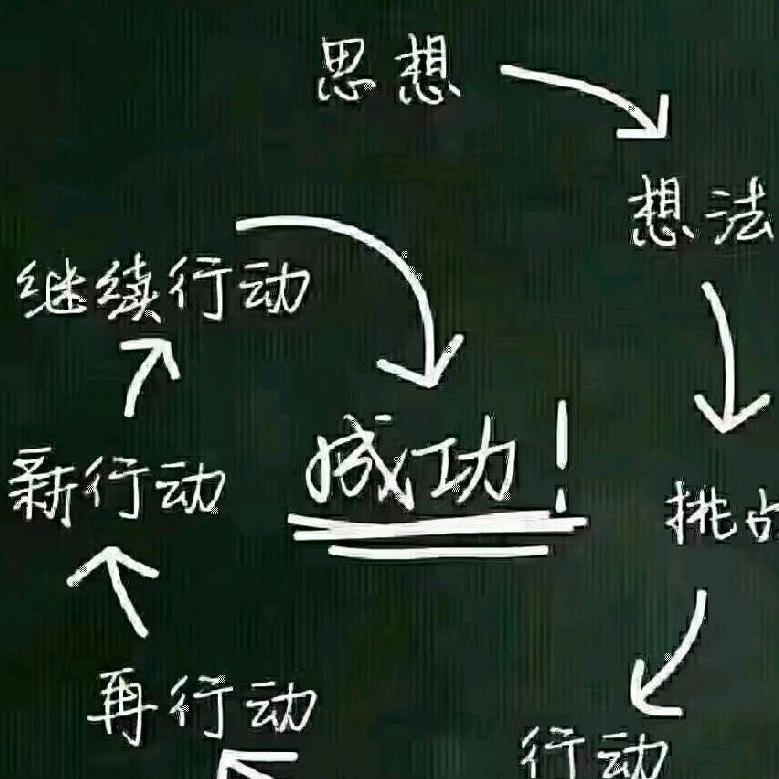 思想
想法
挑
行动
再行动
新行动
继续行动
成功！